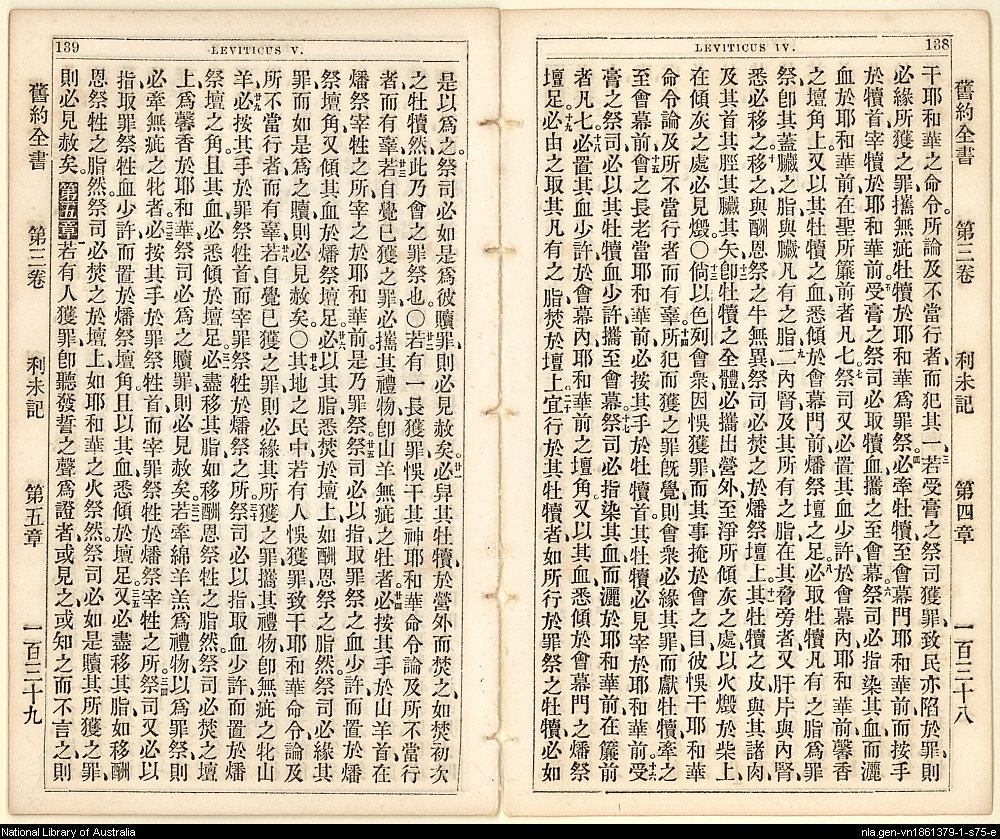 138
LEVITICUS IV.
舊約全書 第三卷 利未記 第四章 一百三十八
干耶和華之命令。所論及不當行者、而犯其一、三若受膏之祭司獲罪、致民亦陷於罪、則
必緣所獲之罪、攜無疵牡犢、於耶和華爲罪祭。四必牽牡犢至會幕門耶和華前、而按手
於犢首、宰犢於耶和華前。五受膏之祭司必取犢血、攜之至會幕。六祭司必指染其血、而灑
血於耶和華前、在聖所簾前者凡七。七祭司又必置其血少許、於會幕內耶和華前馨香
之壇角上、又以其牡犢之血、悉傾於會幕門前燔祭壇之足。八必取牡犢凡有之脂爲罪
祭、卽其蓋臟之脂、與臟凡有之脂、九二內腎及其所有之脂、在其脅旁者、又肝片與內腎
悉必移之。十移之與酬恩祭之牛無異、祭司必焚之於燔祭壇上。十一其牡犢之皮與其諸肉、
及其首、其脛、其臟、其矢、十二卽牡犢之全體、必攜出營外、至淨所傾灰之處、以火燬於柴上、
在傾灰之處必見燬。〇十三倘以色列會衆因悞獲罪、而其事掩於會之目、彼悞干耶和華
命令論及所不當行者、而有辜、十四所犯而獲之罪旣覺、則會衆必緣其罪而獻牡犢、牽之
至會幕前。十五會之長老、當耶和華前、必按其手於牡犢首、其牡犢必見宰於耶和華前。十六受
膏之祭司、必以其牡犢血少許、攜至會幕。十七祭司必指染其血、而灑於耶和華前、在簾前
者凡七。十八必置其血少許、於會幕內耶和華前之壇角、又以其血悉傾於會幕門之燔祭
壇足。十九必由之取其凡有之脂、焚於壇上。二十宜行於其牡犢者、如所行於罪祭之牡犢、必如
139
LEVITICUS V.
是以爲之。祭司必如是爲彼贖罪、則必見赦矣。廿一必舁其牡犢於營外而焚之、如焚初次
之牡犢、然此乃會之罪祭也。〇廿二若有一長獲罪、悞干其神耶和華命令論及所不當行
者、而有辜、廿三若自覺已獲之罪、必攜其禮物、卽山羊無疵之牡者、廿四必按其手於山羊首、在
燔祭宰牲之所、宰之於耶和華前、是乃罪祭。廿五祭司必以指取罪祭之血少許、而置於燔
祭壇角、又傾其血於燔祭壇足。廿六必以其脂悉焚於壇上、如酬恩祭之脂然。祭司必緣其
罪而如是爲之贖、則必見赦矣。〇廿七其地之民中若有人悞獲罪、致干耶和華命令論及
所不當行者、而有辜、廿八若自覺已獲之罪、則必緣其所獲之罪、攜其禮物、卽無疵之牝山
羊。廿九必按其手於罪祭牲首、而宰罪祭牲於燔祭之所。三十祭司必以指取血少許、而置於燔
祭壇之角、且其血必悉傾於壇足。三一必盡移其脂、如移酬恩祭牲之脂然。祭司必焚之壇
上、爲馨香於耶和華、祭司必爲之贖罪、則必見赦矣。三二若牽綿羊羔爲禮物、以爲罪祭、則
必牽無疵之牝者、三三必按其手於罪祭牲首、而宰罪祭牲於燔祭宰牲之所。三四祭司又必以
指取罪祭牲血少許、而置於燔祭壇角、且以其血、悉傾於壇足。三五又必盡移其脂、如移酬
恩祭牲之脂然。祭司必焚之於壇上、如耶和華之火祭然。祭司必如是贖其所獲之罪、
則必見赦矣。第五章 一若有人獲罪、卽聽發誓之聲、爲證者、或見之、或知之、而不言之、則
舊約全書 第三卷 利未記 第五章 一百三十九
National Library of Australia
nla.gen-vn1861379-1-s75-e